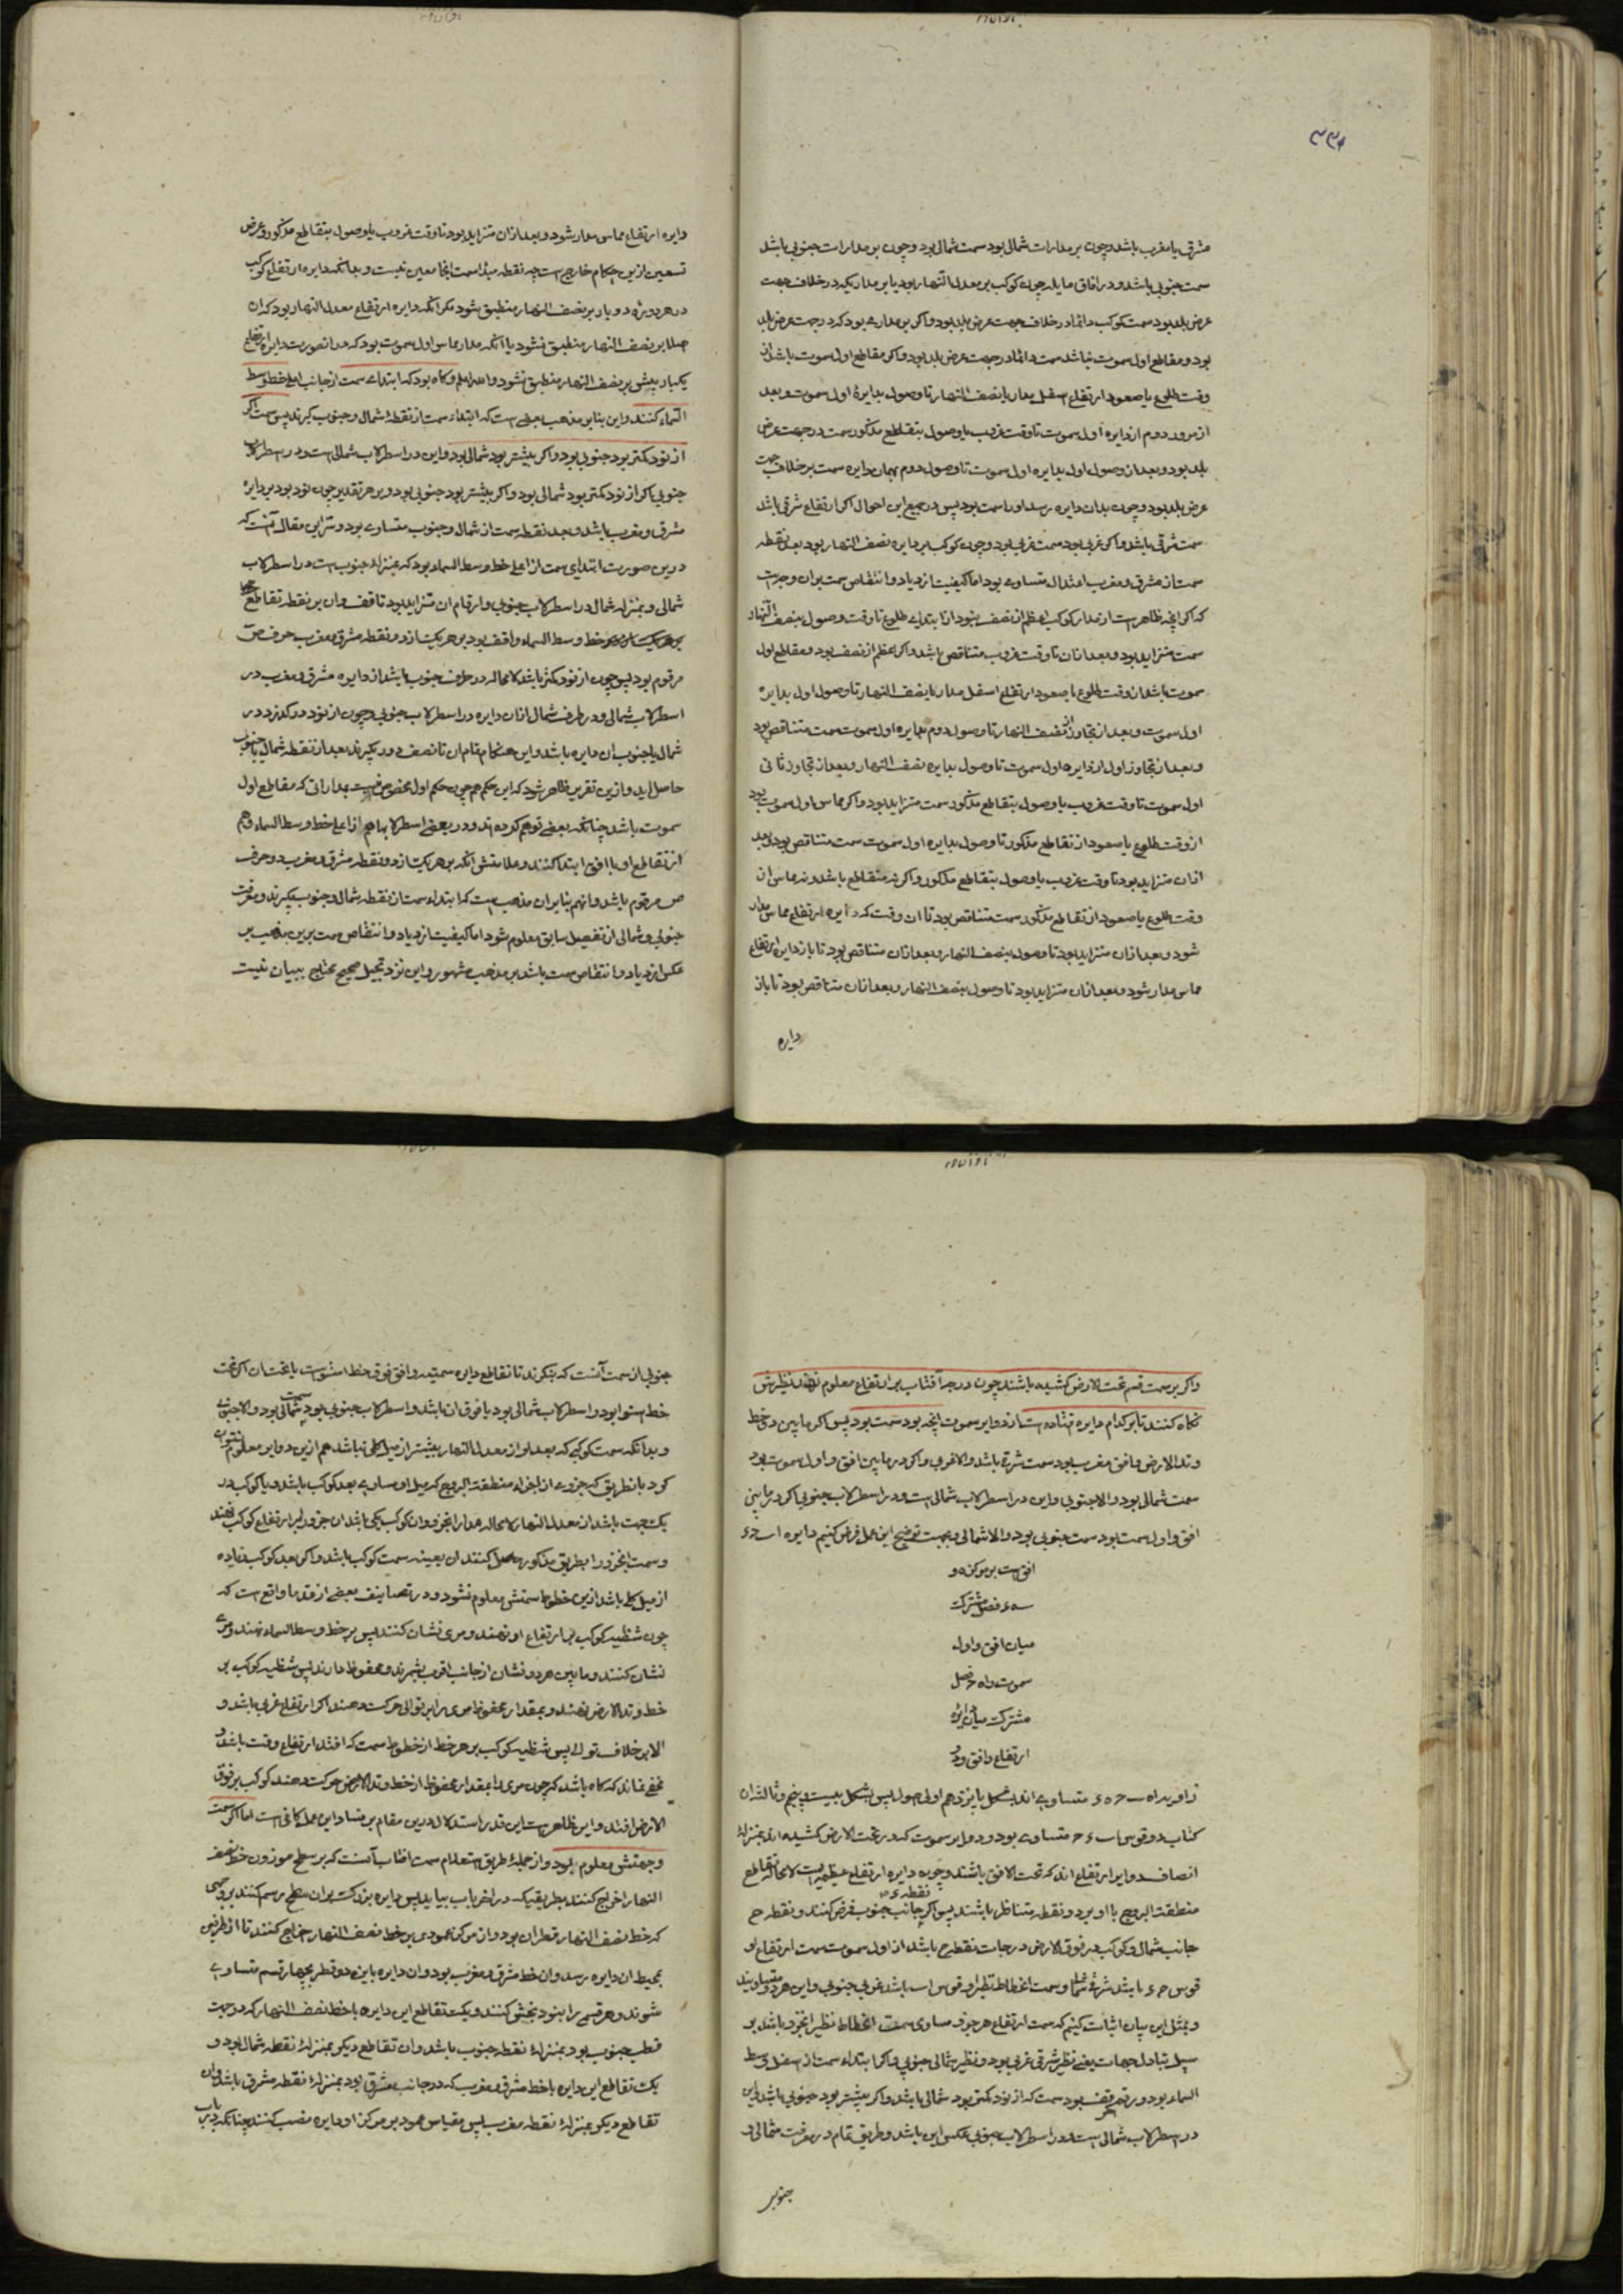 ۳۳۶
مشرق یا مغرب باشد و چون بر مدارات شمالی بود سمت شمالی بود و چون بر مدارات جنوبی باشد
سمت جنوبی باشد و در آفاق مایله چون کوکب بر معدل النهار بود یا بر مداریکه در خلاف جهت
عرض بلد بود سمت کوکب دائما در خلاف جهت عرض بلد بود و اگر بر مداری بود که در جهت عرض بلد
بود و مقاطع اول سموت نباشد سمت دائما در جهت عرض بلد بود و اگر مقاطع اول سموت باشد از
وقت طلوع یا صعود ارتفاع اسفل مدار یا نصف النهار تا وصول بدایرهٔ اول سموت و بعد
از مرور دوم از دایره اول سموت تا وقت غروب یا وصول بتقاطع مذکور سمت در جهت عرض
بلد بود و بعد از وصول اول بدایره اول سموت تا وصول دوم بهمان دایره سمت بر خلاف جهت
عرض بلد بود و چون بدان دایره رسد او را سمت نبود پس در جمیع این احوال اگر ارتفاع شرقی باشد
سمت شرقی باشد و اگر غربی بود سمت غربی بود و چون کوکب بر دایره نصف النهار بود بعد نقطه
سمت از مشرق و مغرب اعتدال متساوی بود اما کیفیت ازدیاد و انتقاص سمت بران وجه است
که اگر آنچه ظاهر است از مدار کوکب اعظم از نصف نبود از ابتدای طلوع تا وقت وصول بنصف النهار
سمت متزاید بود و بعد از آن تا وقت غروب متناقص باشد و اگر اعظم از نصف بود و مقاطع اول
سموت باشد از وقت طلوع یا صعود ارتفاع اسفل مدار یا نصف النهار تا وصول اول بدایره
اول سموت و بعد از تجاوز از نصف النهار تا وصول دوم بدایره اول سموت سمت متناقص بود
و بعد از تجاوز اول از دایره اول سموت تا وصول بدایره نصف النهار و بعد از تجاوز ثانی
اول سموت تا وقت غروب یا وصول بتقاطع مذکور سمت متزاید بود و اگر مماس اول سموت بود
از وقت طلوع یا صعود از تقاطع مذکور تا وصول بدایره اول سموت سمت متناقص بود و بعد
از آن متزاید بود تا وقت غروب یا وصول بتقاطع مذکور و اگر نه متقاطع باشد و نه مماس از
وقت طلوع یا صعود از تقاطع مذکور سمت متناقص بود تا آن وقت که دایره ارتفاع مماس مدار
شود و بعد از آن متزاید بود تا وصول بنصف النهار و بعد از آن متناقص بود تا باز دایره ارتفاع
مماس مدار شود و بعد از آن متزاید بود تا وصول بنصف النهار و بعد از آن متناقص بود تا باز
دایره
دایره ارتفاع مماس مدار شود و بعد از آن متزاید بود تا وقت غروب یا وصول بتقاطع مذکور و عرض
تسعین ازین احکام خارج است چه نقطه مبدأ سمت آنجا معین نیست و بدانکه دایره ارتفاع کوکب
در هر دوره دو بار بر نصف النهار منطبق شود مگر آنکه دایره ارتفاع معدل النهار بود که آن
اصلا بر نصف النهار منطبق نشود یا آنکه مدار مماس اول سموت بود که در آن صورت دایره ارتفاع
یکبار بیش بر نصف النهار منطبق نشود والله اعلم و گاه بود که ابتداء سمت از جانب اعلی خط وسط
السماء کنند و این بنابر مذهب بعضی است که ابتداء سمت از نقطهٔ شمال و جنوب گیرند پس سمت اگر
از نود کمتر بود جنوبی بود و اگر بیشتر بود شمالی بود و این در اسطرلاب شمالی است و در اسطرلاب
جنوبی اگر از نود کمتر بود شمالی بود و اگر بیشتر بود جنوبی بود و بر هر تقدیر چون نود بود بر دایرهٔ
مشرق و مغرب باشد و بعد نقطه سمت از شمال و جنوب متساوی بود و سر این مقال آنست که
درین صورت ابتدای سمت از اعلی خط وسط السماء بود که بمنزله جنوب است در اسطرلاب
شمالی و بمنزله شمال در اسطرلاب جنوبی و ارقام آن متزاید بود تا قف و آن بر نقطه تقاطع
خط وسط السماء واقف بود و بر هر یک از دو نقطه مشرق و مغرب حرف ص
مرقوم بود پس چون از نود کمتر باشد لامحاله در طرف جنوب باشد از دایره مشرق و مغرب در
اسطرلاب شمالی و در طرف شمال از آن دایره در اسطرلاب جنوبی و چون از نود درگذرد در
شمال یا جنوب آن دایره باشد و این هنگام تمام آن تا نصف دور بگیرند بعد از نقطه شمال یا جنوب
حاصل آید و ازین تقریر ظاهر شود که این حکم همچون حکم اول مخصوص نیست بمداراتی که مقاطع اول
سموت باشد چنانکه بعضی توهم کرده اند و در بعضی اسطرلابها هم از اعلی خط وسط السماء و هم
از تقاطع او با افق ابتدا کنند و علامتش آنکه بر هر یک از دو نقطه مشرق و مغرب دو حرف
ص مرقوم باشد و آنهم بنابر آن مذهب است که ابتداء سمت از نقطه شمال و جنوب بگیرند و معرفت
جنوبی و شمالی از تفصیل سابق معلوم شود اما کیفیت ازدیاد و انتقاص سمت برین مذهب بر
عکس ازدیاد و انتقاص سمت باشد بر مذهب مشهور و این نزد تخیل صحیح محتاج ببیان نیست
و اگر بر سمت قسم تحت الارض کشیده باشند چون درجه آفتاب بر ارتفاع معلوم نهند نظیرش
نگاه کنند تا بر کدام دایره افتاده است از دوایر سموت آنچه بود سمت بود پس اگر مابین خط
وتد الارض و افق مغرب بود سمت شرقی باشد و الا غربی و اگر در مابین افق و اول سموت بود
سمت شمالی بود و الا جنوبی و این در اسطرلاب شمالی است و در اسطرلاب جنوبی اگر در مابین
افق و اول سمت بود سمت جنوبی بود و الا شمالی و بجهت توضیح این عمل فرض کنیم دایره ا ب ح ء
افق است بر مرکز ه و
ب ه ء فصل مشترک
میان افق و اول
سموت و ا ه ح فصل
مشترک میان دایره
ارتفاع و افق و دو
زاویه ا ه ب ح ه ء متساوی اند بشکل پانزدهم اولی اصول پس بشکل بیست و پنجم و ثالثه آن
کتاب دو قوس ا ب ء ح متساوی بود و دوایر سموت که در تحت الارض کشیده اند بمنزلهٔ
انصاف دوایر ارتفاع اند که تحت الافق باشند و چون دایره ارتفاع عظیمه ایست لامحاله تقاطع
منطقة البروج با او بر دو نقطه متناظر باشند پس اگر جانب جنوب نقطه ء فرض کنند و نقطه ح
جانب شمال و کوکب در فوق الارض در جانب نقطه ح باشد از اول سموت سمت ارتفاع او
قوس ح ء باشد شرقی شمالی و سمت انحطاط نظیر او قوس ا ب باشد غربی جنوبی و این هر دو متساویند
و بمثل این بیان اثبات کنیم که سمت ارتفاع هر جزو مساوی سمت انحطاط نظیر آنجزو باشد بر
سبیل تبادل جهات یعنی نظیر شرقی غربی بود و نظیر شمالی جنوبی و اگر ابتداء سمت از اسفل وسط
السماء بود و رقم قف بود سمت که از نود کمتر بود شمالی باشد و اگر بیشتر بود جنوبی باشد و این
در اسطرلاب شمالی است و در اسطرلاب جنوبی عکس این باشد و طریق تمام در معرفت شمالی و
جنوبی
جنوبی از سمت آنست که بنگرند تا تقاطع دایره سمتیه و افق فوق خط استواست یا تحت آن اگر تحت
خط استوا بود و اسطرلاب شمالی بود یا فوق آن باشد و اسطرلاب جنوبی بود سمت شمالی بود و الا جنوبی
و بدانکه سمت کوکبی که بعد او از معدل النهار بیشتر از میل کلی نباشد هم ازین دوایر معلوم توان
کرد بانطریق که جزوی از اجزاء منطقة البروج که میل او مساوی بعد کوکب باشد و با کوکب در
یک جهت باشد از معدل النهار لامحاله مدار آنجزو و آن کوکب یکی باشد آن جزو را بر ارتفاع کوکب نهند
و سمت آنجزو را بطریق مذکور حاصل کنند آن بعینه سمت کوکب باشد و اگر بعد کوکب زیاده
از میل کلی باشد ازین خطوط سمتش معلوم نشود و در تصانیف بعضی از قدما واقع است که
چون شظیه کوکب بر ارتفاع او نهند و مری نشان کنند پس بر خط وسط السماء نهند و مری
نشان کنند و مابین هر دو نشان از جانب اقرب بشمرند و محفوظ دارند پس شظیه کوکب بر
خط وتد الارض نهند و بمقدار محفوظ مری را بر توالی حرکت دهند اگر ارتفاع غربی باشد و
الا بر خلاف توالی پس شظیه کوکب بر هر خط از خطوط سمت که افتد ارتفاع وقت باشد و
مخفی نماند که گاه باشد که چون مری را بمقدار محفوظ از خط وتد الارض حرکت دهند کوکب بر فوق
الارض افتد و این ظاهر است این قدر استدلال درین مقام بر فساد این عمل کافی است اما اگر سمت
وجهتش معلوم بود و از جملهٔ طریق استعلام سمت آفتاب آنست که بر سطح موزون خط نصف
النهار اخراج کنند بطریقیکه در آخر باب بیاید پس دایره بزرگ بر آن سطح رسم کنند بر وجهی
که خط نصف النهار قطر آن بود و از مرکز عمودی بر خط نصف النهار اخراج کنند تا از طرفین
بمحیط آن دایره رسد و آن خط مشرق و مغرب بود و آن دایره باین دو قطر بچهار قسم متساوی
شوند و هر قسمی را بنود بخش کنند و یک تقاطع این دایره با خط نصف النهار که در جهت
قطب جنوب بود بمنزلهٔ نقطه جنوب باشد و آن تقاطع دیگر بمنزلهٔ نقطه شمال بود و
یک تقاطع این دایره با خط مشرق و مغرب که در جانب مشرق بود بمنزلهٔ نقطه مشرق باشد و آن
تقاطع دیگر بمنزلهٔ نقطه مغرب پس مقیاس عمود بر مرکز او دایره نصب کنند چنانکه در باب